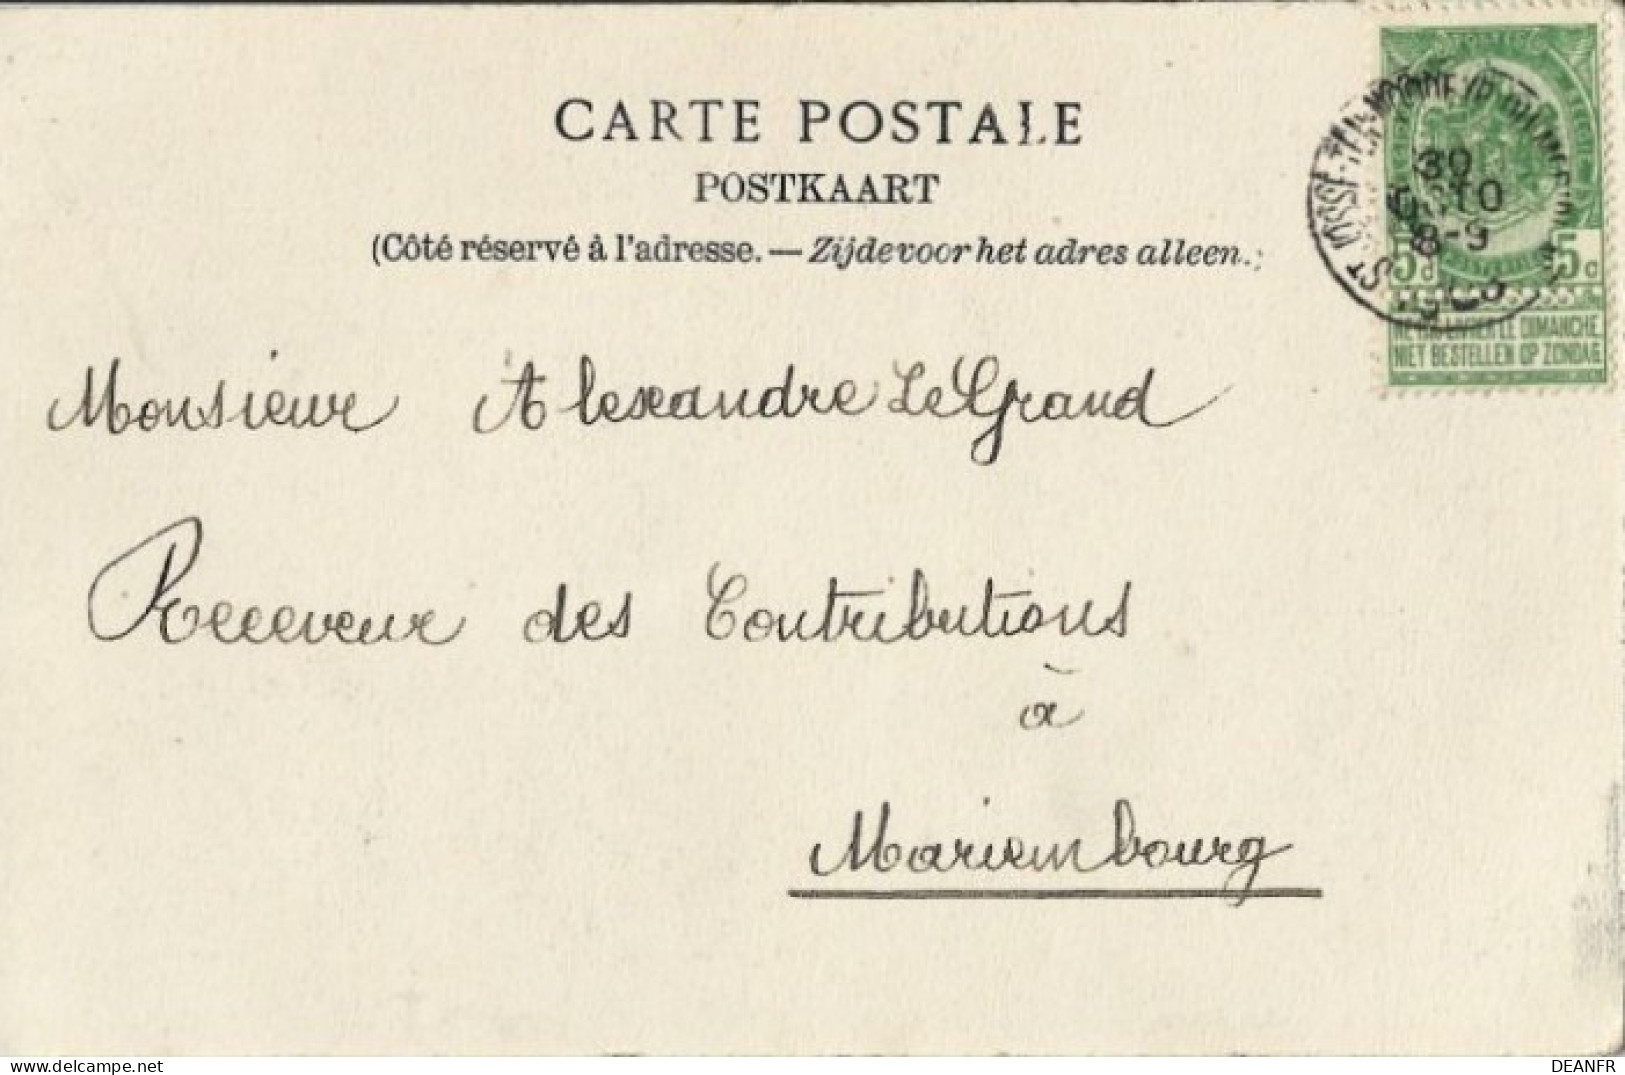 CARTE POSTALE
POSTKAART
(Côté réservé à l'adresse. — Zijde voor het adres alleen.
30
OCTO
8-9
5c 5c
NE PAS LIVRER LE DIMANCHE
NIET BESTELLEN OP ZONDAG
Monsieur Alexandre LeGrand
Receveur des Contributions
à
Mariembourg
DEANFR